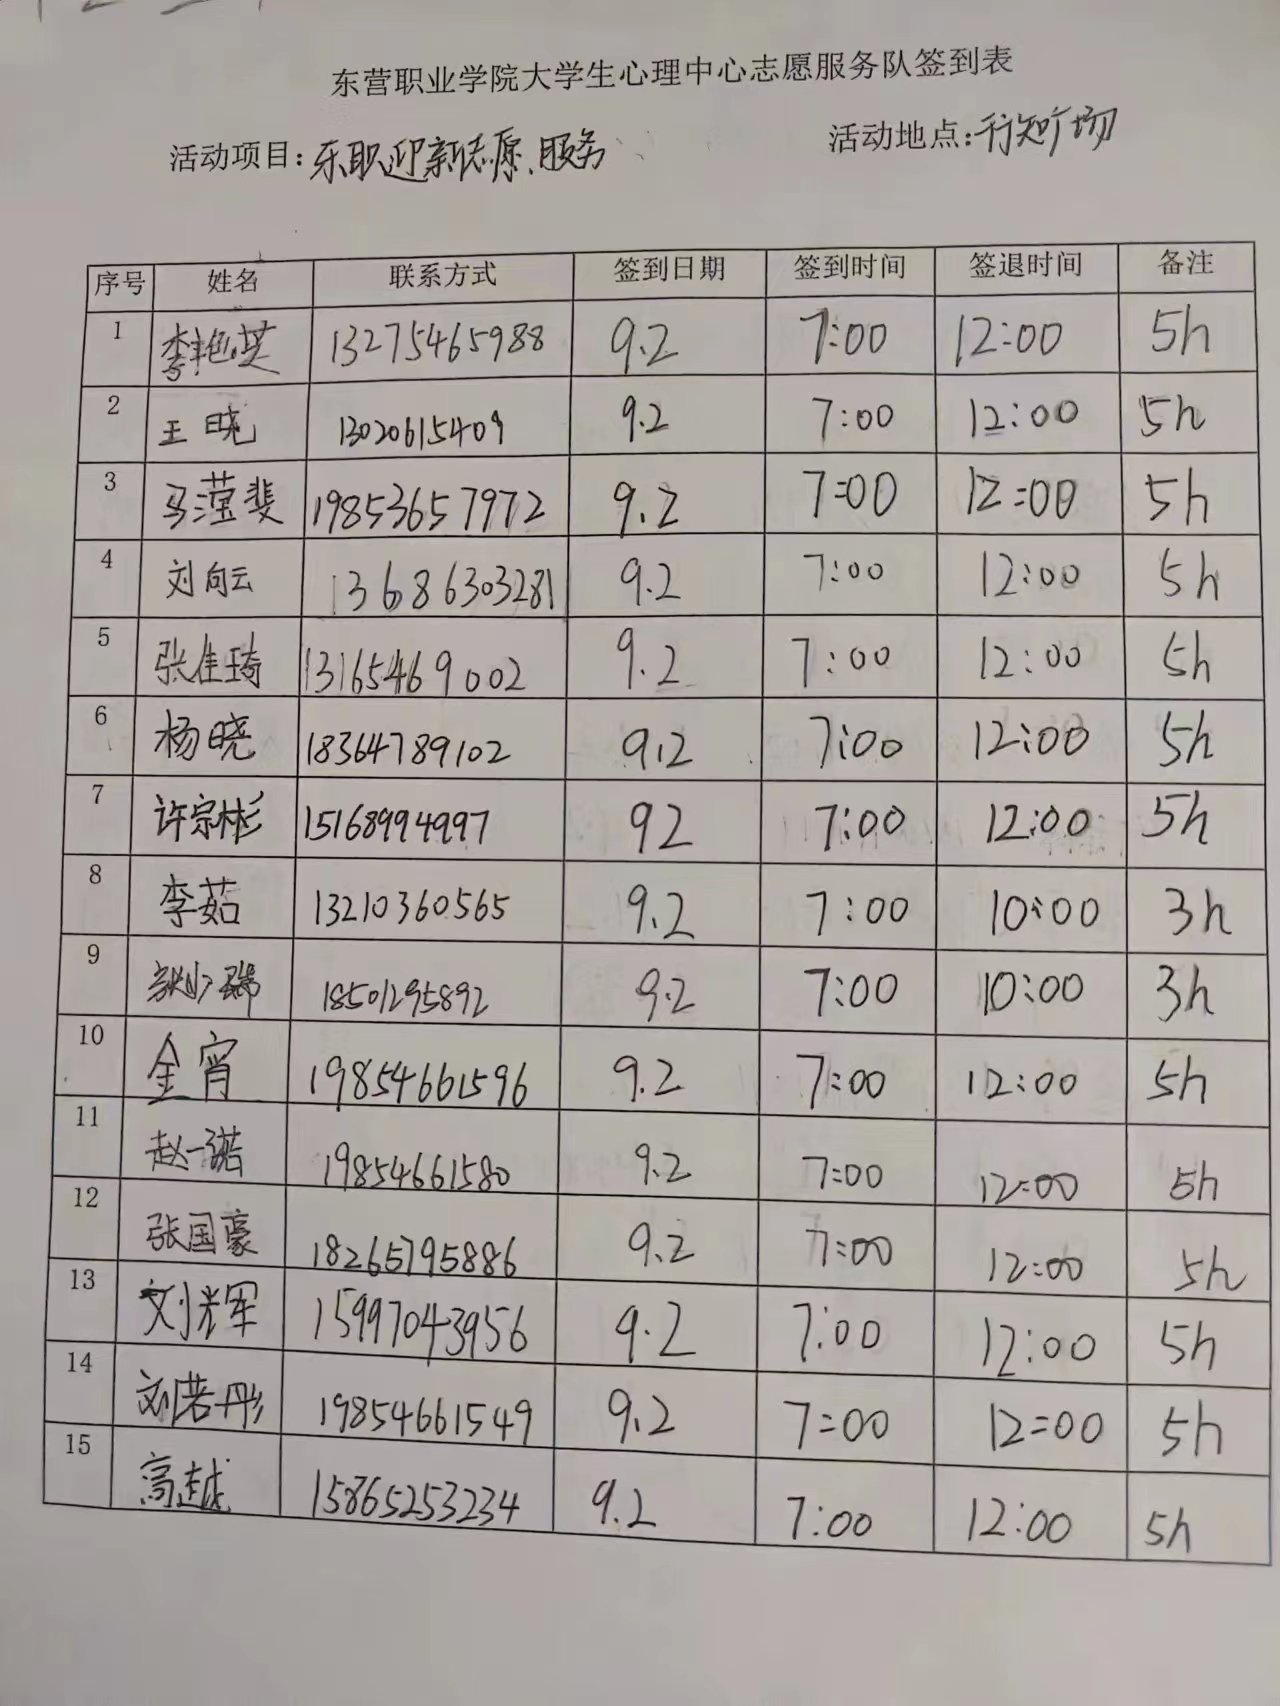 东营职业学院大学生心理中心志愿服务队签到表
活动项目:东职迎新志愿服务 活动地点:行知广场
序号 姓名 联系方式 签到日期 签到时间 签退时间 备注
1 李艳英 13275465988 9.2 7:00 12:00 5h
2 王晓 13020615409 9.2 7:00 12:00 5h
3 马滢斐 19853657972 9.2 7:00 12:00 5h
4 刘向云 13686303281 9.2 7:00 12:00 5h
5 张佳琦 13165469002 9.2 7:00 12:00 5h
6 杨晓 18364789102 9.2 7:00 12:00 5h
7 许宗彬 15168994997 92 7:00 12:00 5h
8 李茹 13210360565 9.2 7:00 10:00 3h
9 18501295892 9.2 7:00 10:00 3h
10 金宵 19854661596 9.2 7:00 12:00 5h
11 赵一诺 19854661580 9.2 7:00 12:00 5h
12 张国豪 18265795886 9.2 7:00 12:00 5h
13 刘光军 15997043956 9.2 7:00 12:00 5h
14 刘若彤 19854661549 9.2 7:00 12:00 5h
15 高越 15865253234 9.2 7:00 12:00 5h